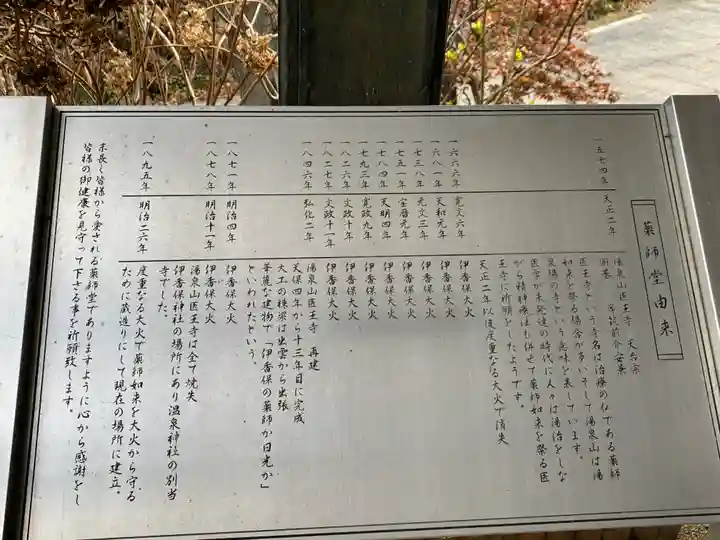 薬師堂由来
一五七四年 天正二年 湯泉山医王寺 天台宗
医王寺という寺名は治療の仏である薬師
如来を祭る場合が多いそして湯泉山は湯
泉場の寺という意味を表しています。
医学が未発達の時代に人々は湯治をしな
がら精神療法も併せて薬師如来を祭る医
王寺に祈願をしたようです。
天正二年以後度重なる大火で消失
一六六六年 寛文六年 伊香保大火
一六八一年 天和元年 伊香保大火
一七三八年 元文三年 伊香保大火
一七五一年 宝暦元年 伊香保大火
一七八四年 天明四年 伊香保大火
一七九三年 寛政九年 伊香保大火
一八二六年 文政十年 伊香保大火
一八二七年 文政十一年 伊香保大火
一八四六年 弘化二年 湯泉山医王寺 再建
天保四年から十三年目に完成
大工の棟梁は出雲から出張
華麗な建物で「伊香保の薬師か日光か」
といわれたという。
一八七一年 明治四年 伊香保大火
一八七八年 明治十一年 伊香保大火
湯泉山医王寺は全て焼失
伊香保神社の場所にあり温泉神社の別当
寺でした。
一八九五年 明治二六年 度重なる大火で薬師如来を大火から守る
ために蔵造りにして現在の場所に建立。
末長く皆様から愛される薬師堂でありますように心から感謝をし
皆様の御健康を見守って下さる事を祈願致します。